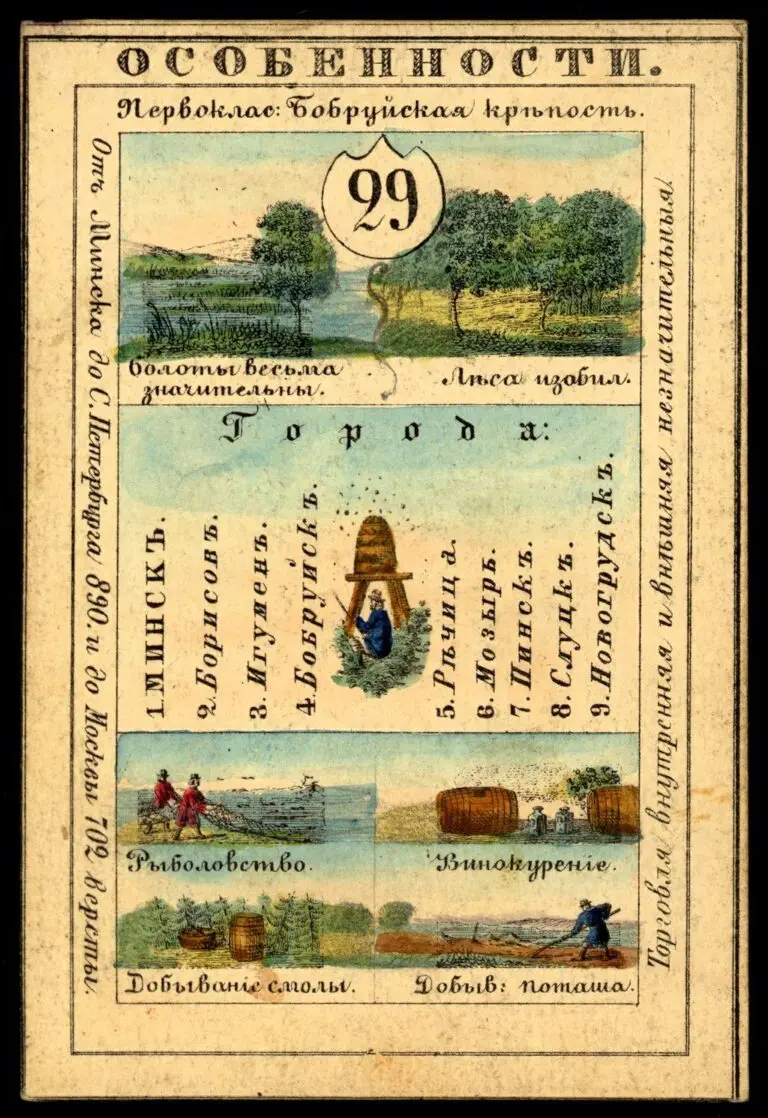 ОСОБЕННОСТИ.
Первоклас: Бобруйская крѣпость.
29
Болоты весьма
значительны.
Лѣса изобил.
Города:
1. МИНСКЪ.
2. Борисовъ.
3. Игуменъ.
4. Бобруйскъ.
5. Рѣчица.
6. Мозырь.
7. Пинскъ.
8. Слуцкъ.
9. Новогрудскъ.
Рыболовство.
Винокуреніе.
Добываніе смолы.
Добыв: поташа.
Отъ Минска до С. Петербурга 890. и до Москвы 702 версты.
Торговля внутренняя и внѣшняя незначительныя.